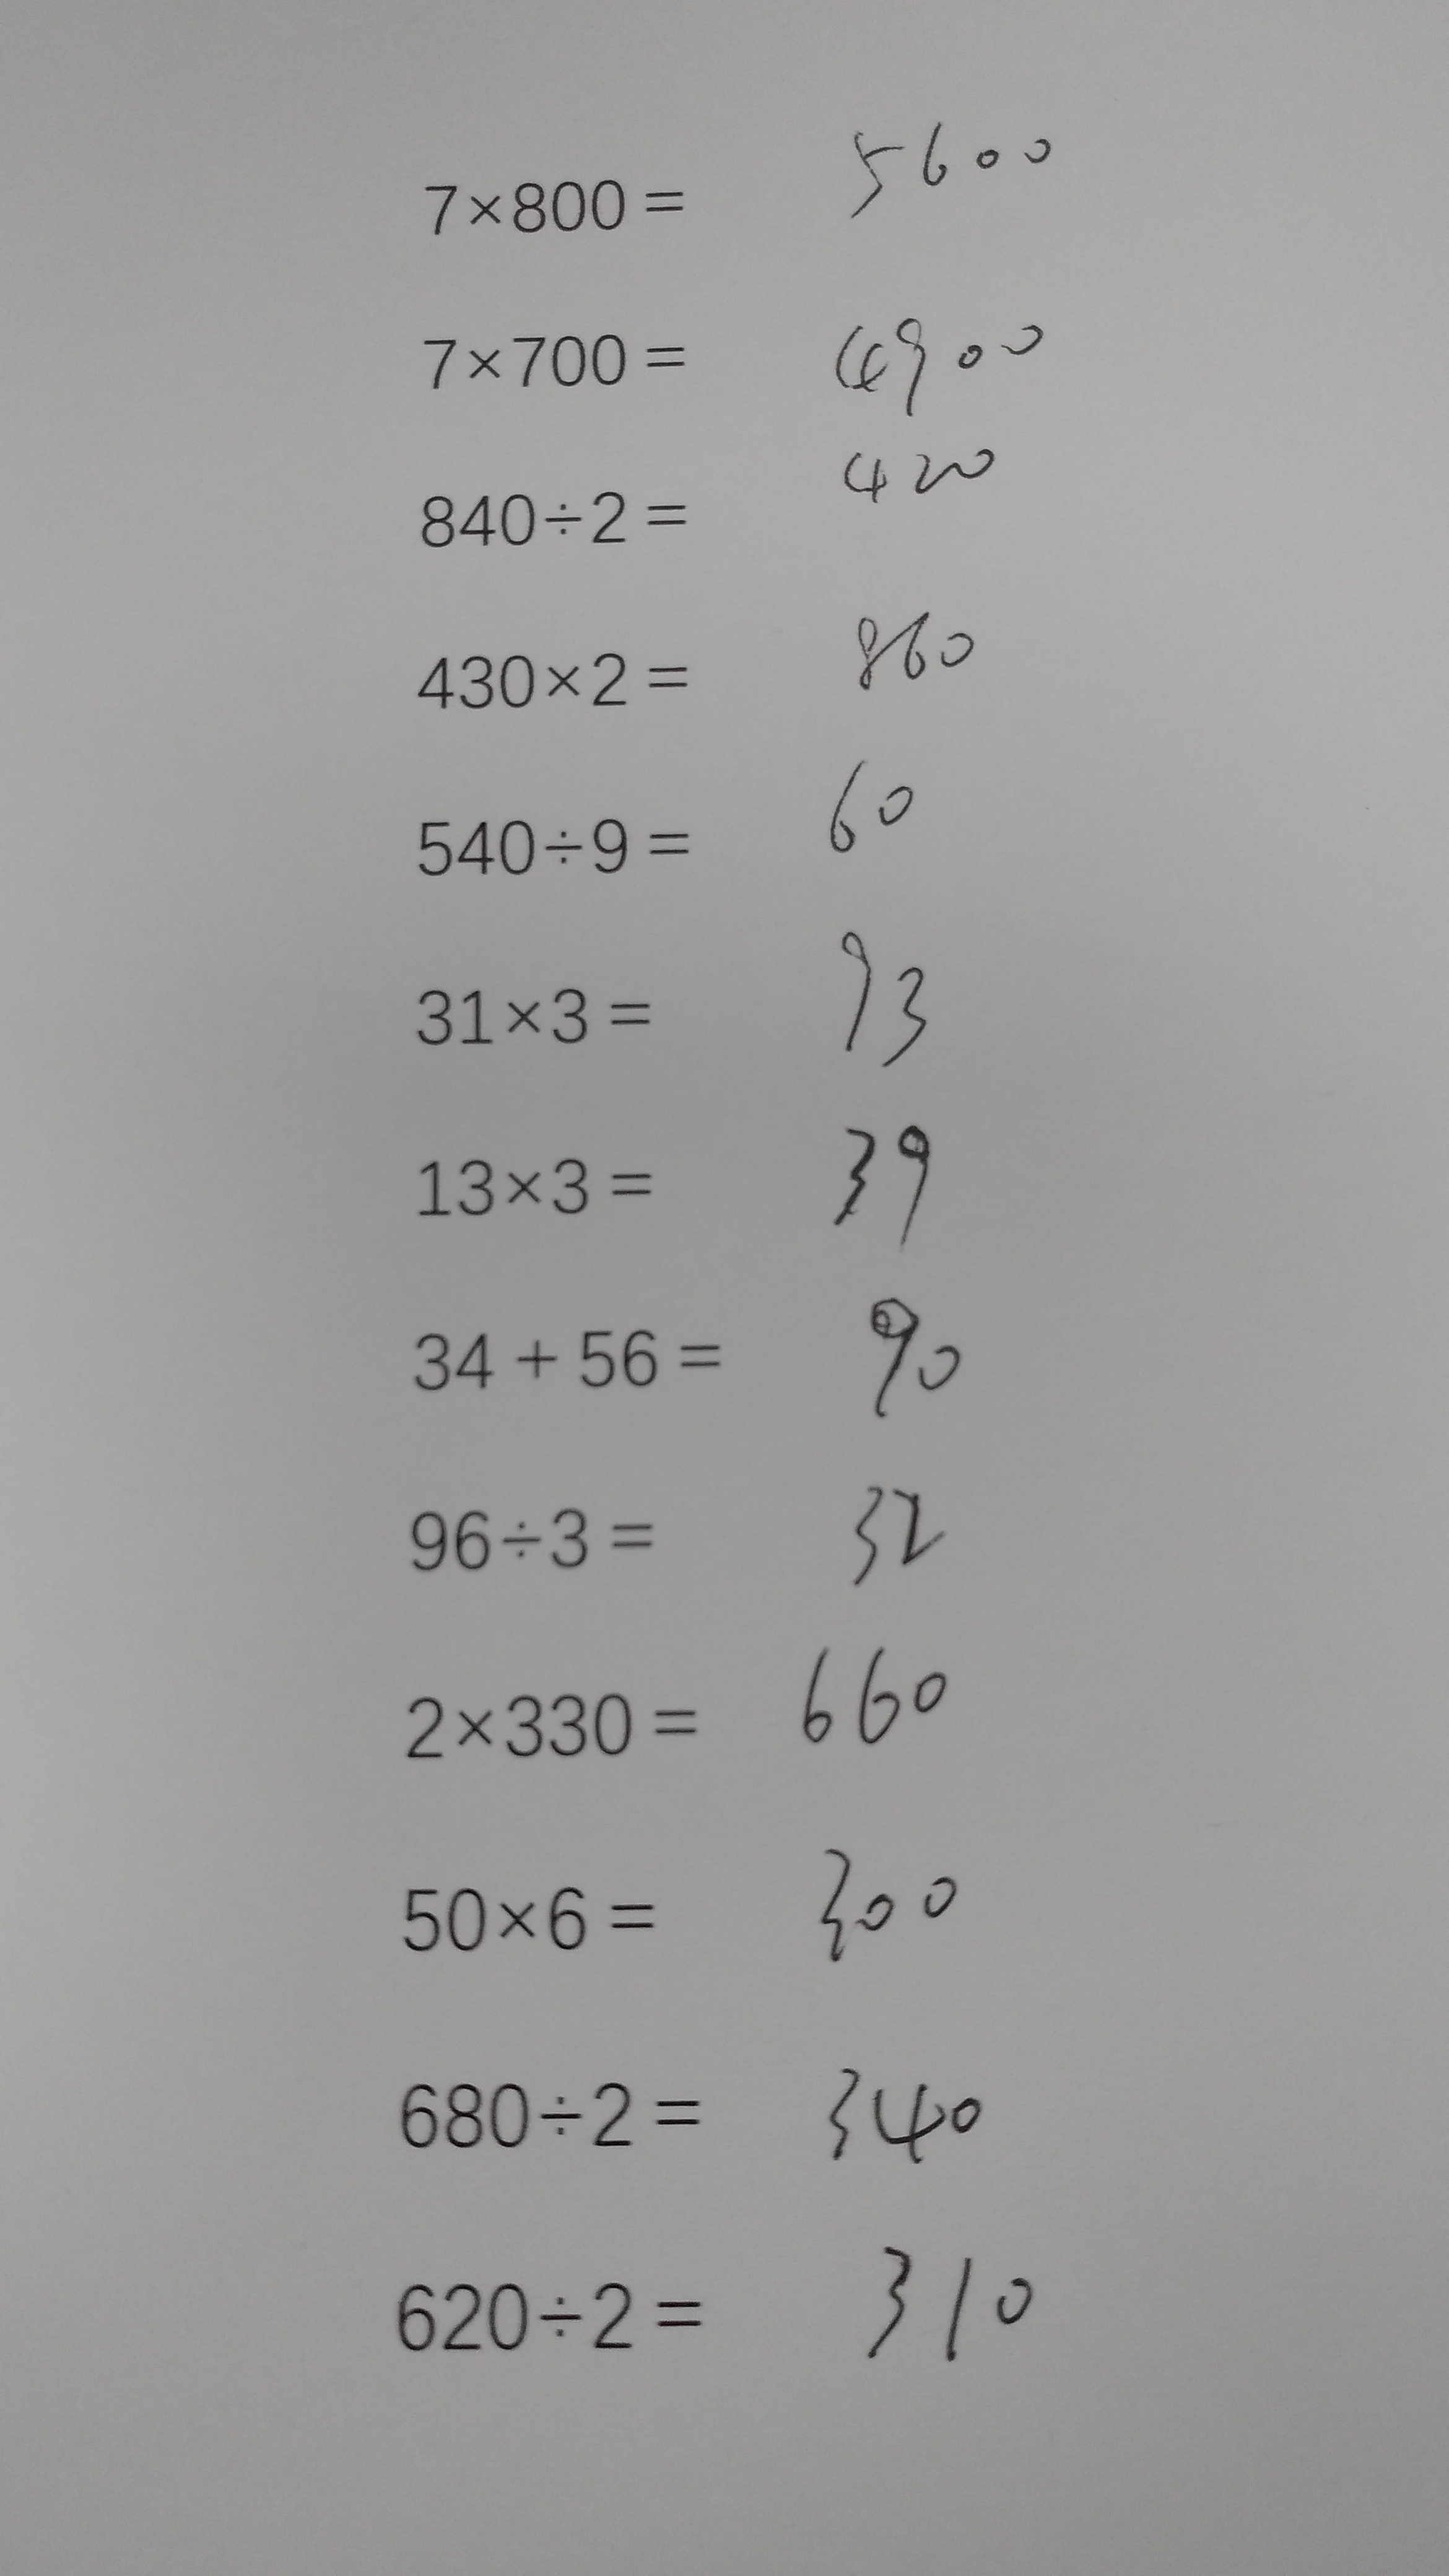 7×800= 5600
7×700= 4900
840÷2= 420
430×2= 860
540÷9= 60
31×3= 93
13×3= 39
34+56= 90
96÷3= 32
2×330= 660
50×6= 300
680÷2= 340
620÷2= 310